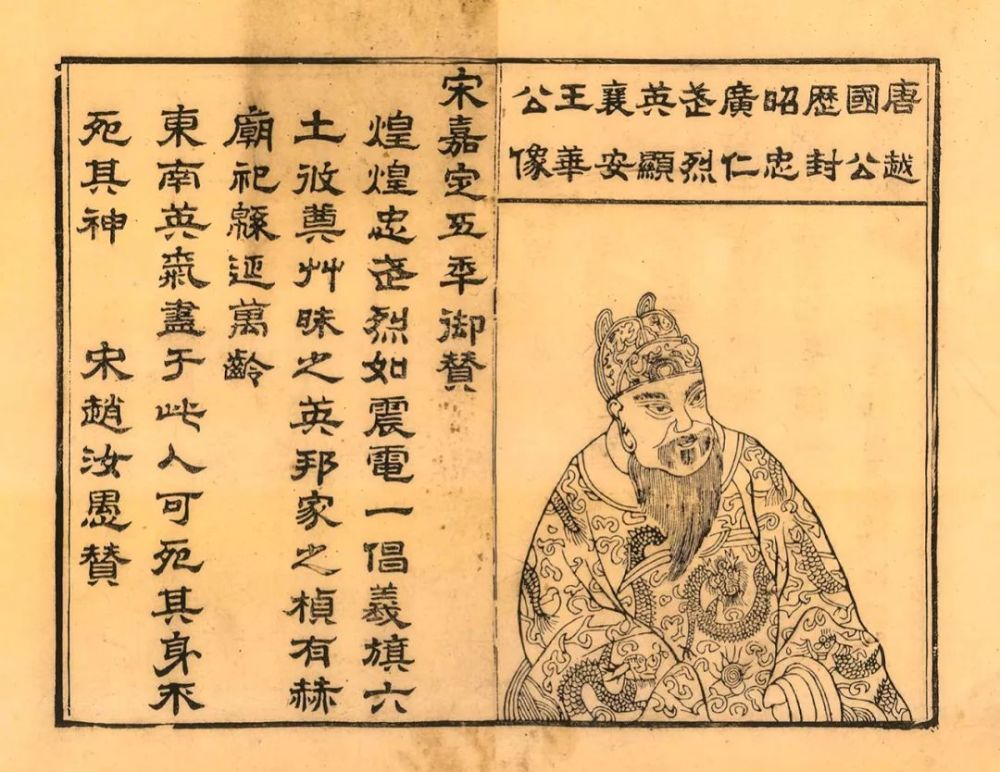 唐越
國公
歷封
昭忠
廣仁
武烈
英顯
襄安
王華
公像
宋嘉定五年御贊
煌煌忠武烈如震電一倡義旗六
土攸奠艸昧之英邦家之楨有赫
廟祀緜延萬齡
東南英氣盡于此人可死其身不
死其神 宋趙汝愚贊